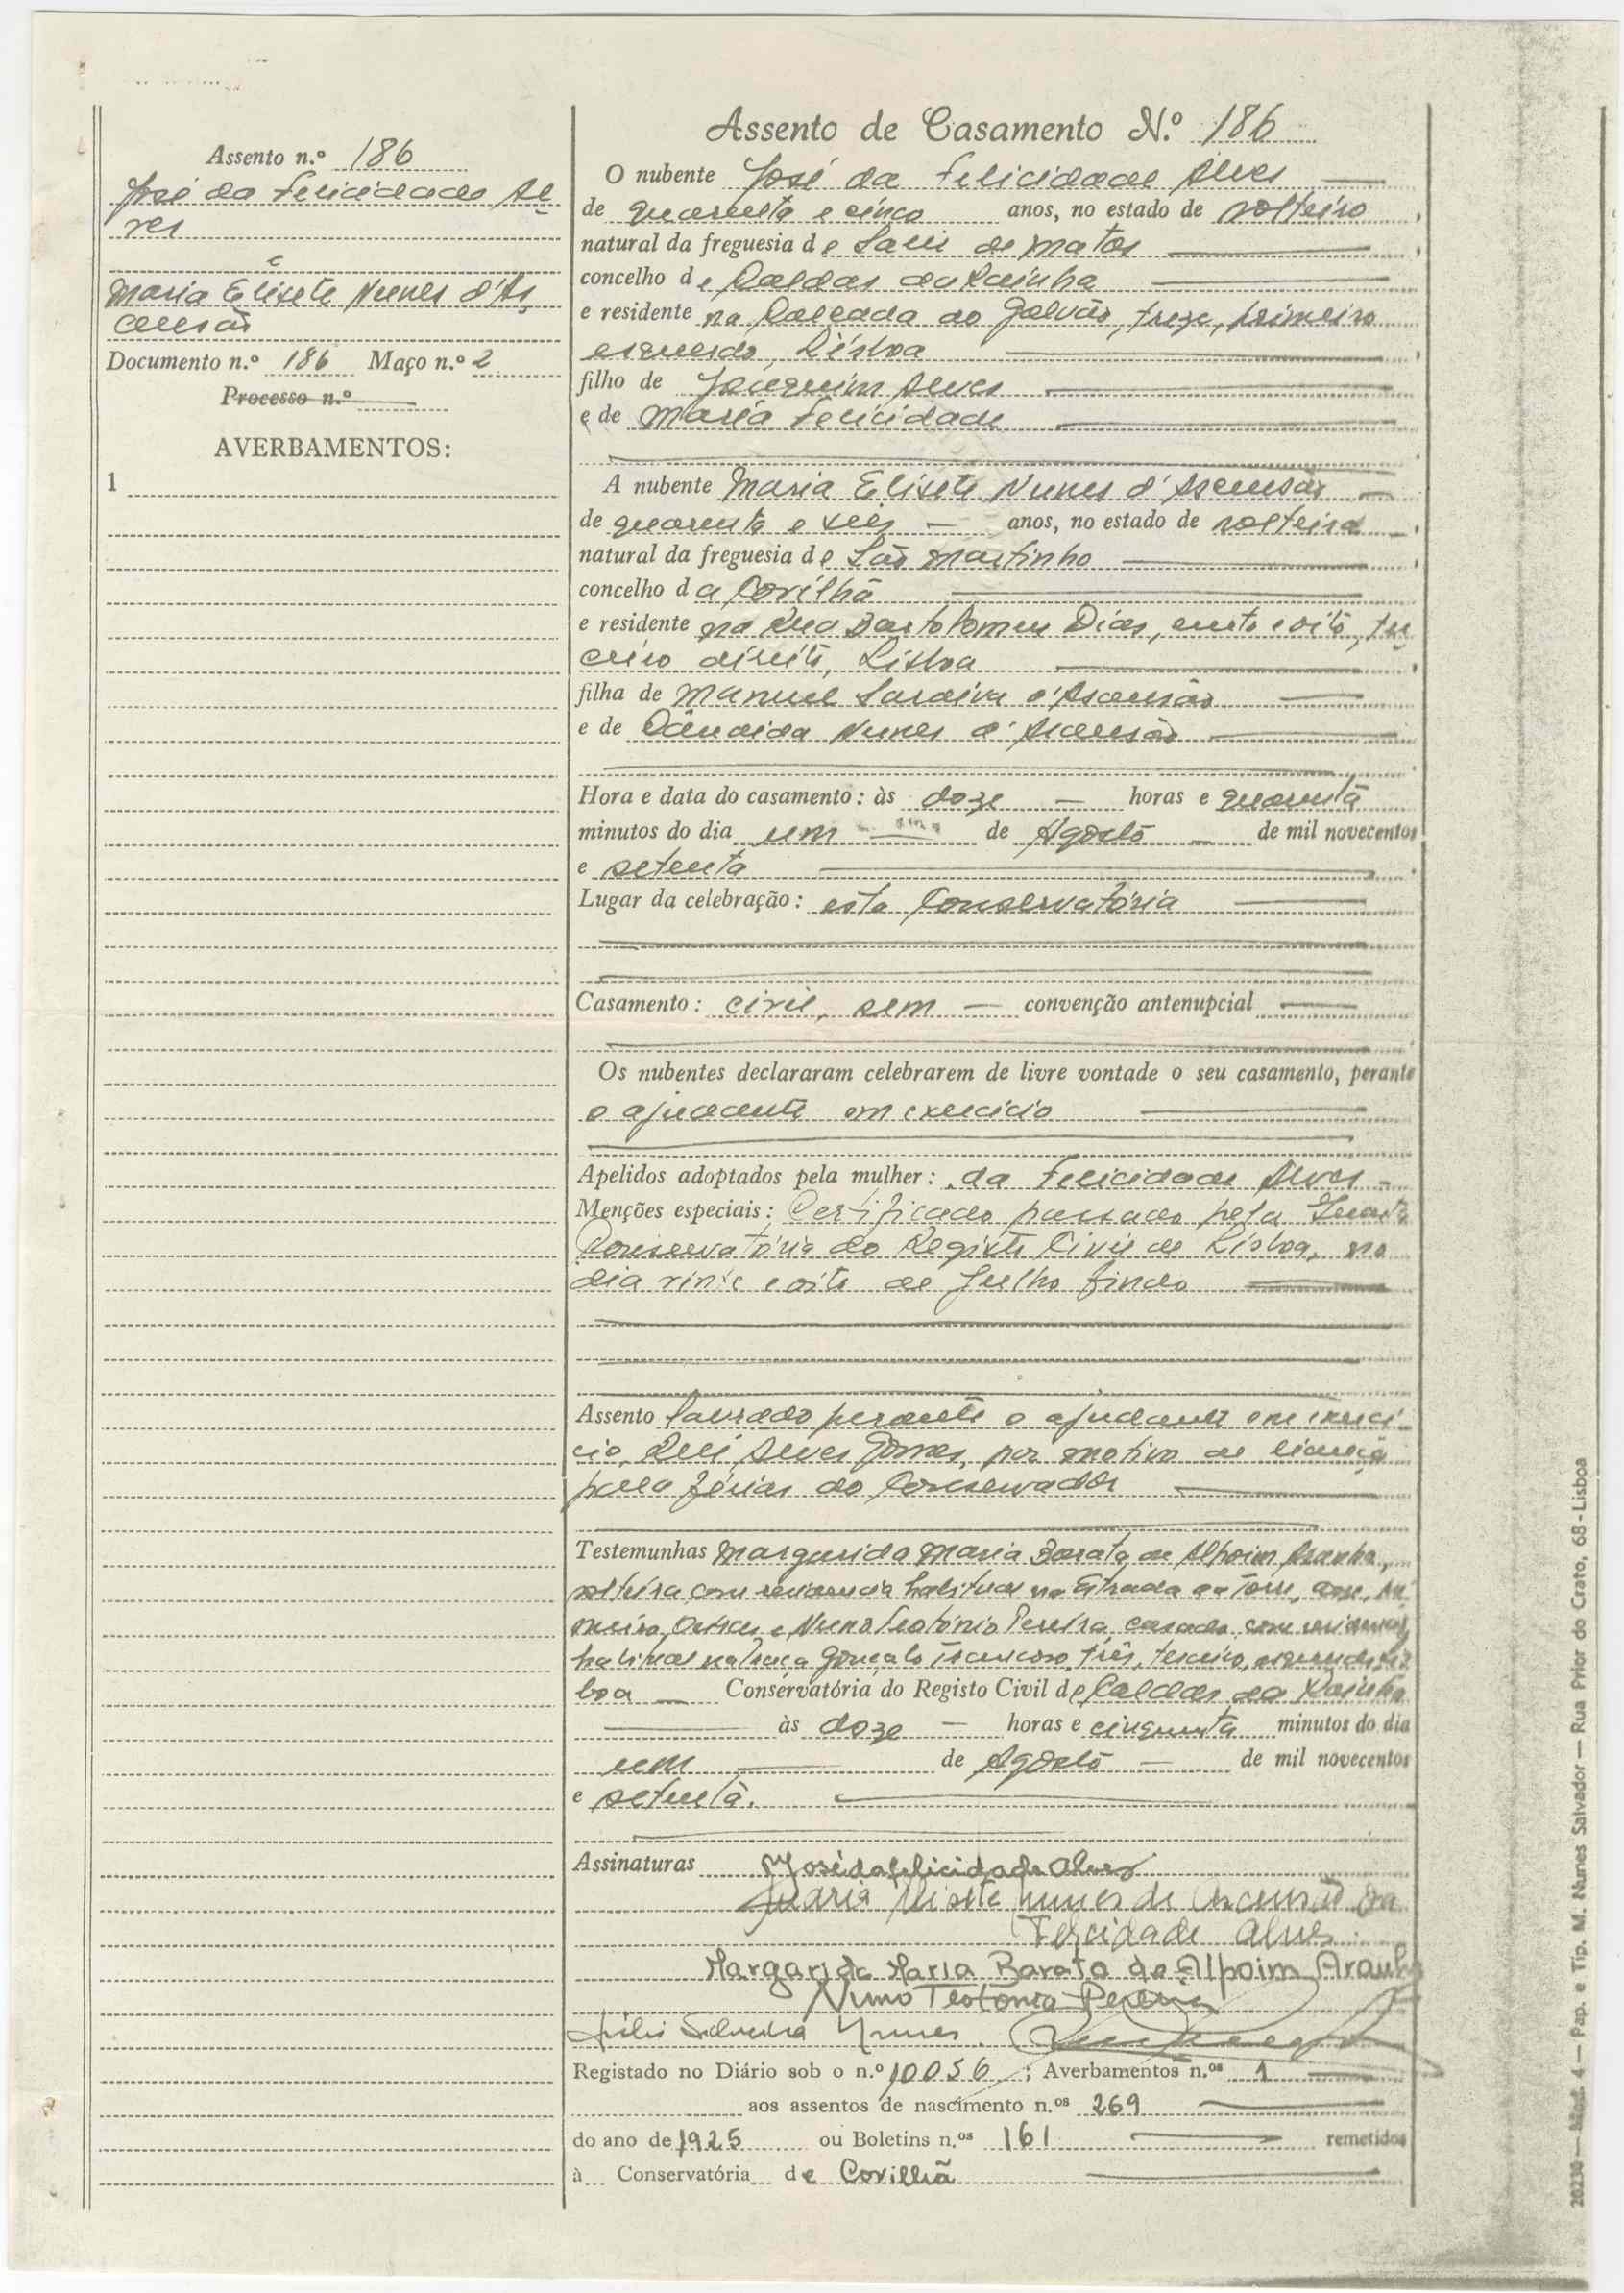 Assento n.º 186
José da Felicidade Al
ves
e
Maria Elisete Nunes d'As
censão
Documento n.º 186 Maço n.º 2
Processo n.º
AVERBAMENTOS:
1
Assento de Casamento N.º 186
O nubente José da Felicidade Alves
de quarenta e cinco anos, no estado de solteiro,
natural da freguesia de Salir de Matos,
concelho de Caldas da Rainha
e residente na Calçada do Galvão, treze, primeiro
esquerdo, Lisboa,
filho de Joaquim Alves
e de Maria Felicidade
A nubente Maria Elisete Nunes d'Ascensão
de quarenta e seis anos, no estado de solteira,
natural da freguesia de São Martinho,
concelho da Covilhã
e residente na Rua Bartolomeu Dias, cento e oito, ter
ceiro direito, Lisboa,
filha de Manuel Saraiva d'Ascensão
e de Cândida Nunes d'Ascensão
Hora e data do casamento: às doze horas e quarenta
minutos do dia um de Agosto de mil novecentos
e setenta.
Lugar da celebração: esta Conservatória
Casamento: civil, sem convenção antenupcial
Os nubentes declararam celebrarem de livre vontade o seu casamento, perante
o ajudante em exercício
Apelidos adoptados pela mulher: da Felicidade Alves
Menções especiais: Certificado passado pela Quarta
Conservatória do Registo Civil de Lisboa, no
dia vinte e oito de Julho findo
Assento lavrado perante o ajudante em exercí
cio, Rui Alves Gomes, por motivo de licença
para férias do Conservador
Testemunhas Margarida Maria Barata de Alpoim Aranha,
solteira, com residencia habitual na Estrada da Torre, pri
meiro, e Nuno Teotónio Pereira, casado, com residencia
habitual na Praça Gonçalo Trancoso, três, terceiro, esquerdo, Lis
boa Conservatória do Registo Civil de Caldas da Rainha
às doze horas e cinquenta minutos do dia
um de Agosto de mil novecentos
e setenta.
Assinaturas José da Felicidade Alves
Maria Elisete Nunes de Ascensão da
Felicidade Alves
Margarida Maria Barata de Alpoim Aranha
Nuno Teotónio Pereira
Júlio Nunes.
Registado no Diário sob o n.º 10056; Averbamentos n.os 1
aos assentos de nascimento n.os 269
do ano de 1925 ou Boletins n.os 161 remetidos
à Conservatória de Covilhã
20230 — Mod. 4 — Pap. e Tip. M. Nunes Salvador — Rua Prior do Crato, 68 - Lisboa